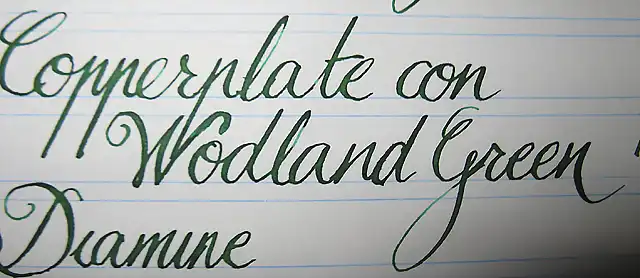 Copperplate con
Wodland Green
Diamine